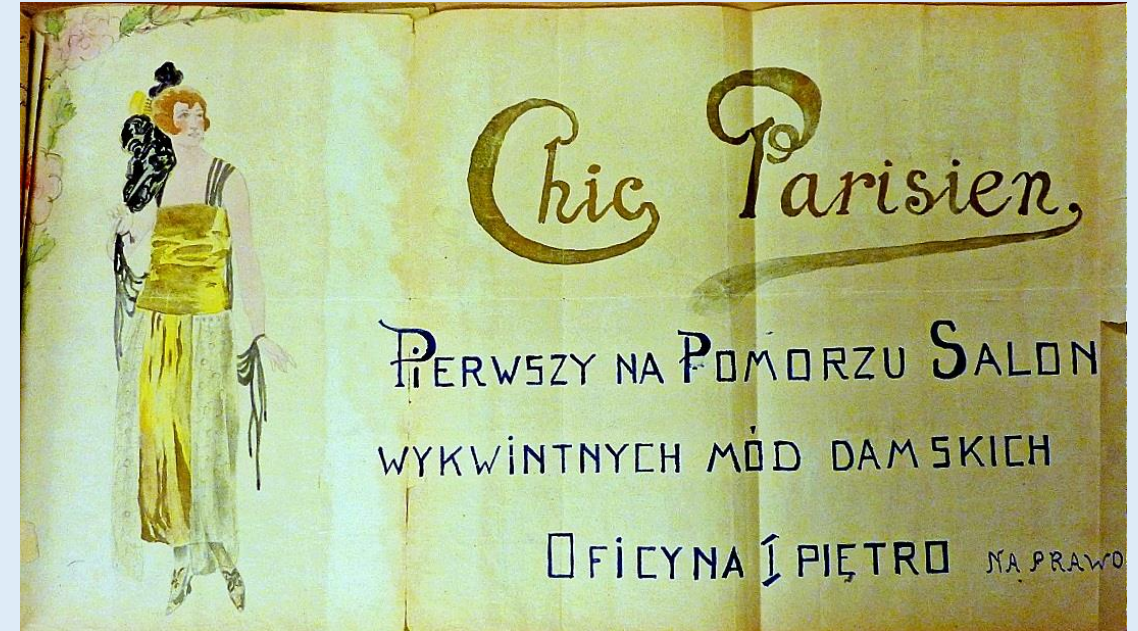 Chic Parisien,
PIERWSZY NA POMORZU SALON
WYKWINTNYCH MÓD DAMSKICH
OFICYNA I PIĘTRO NA PRAWO